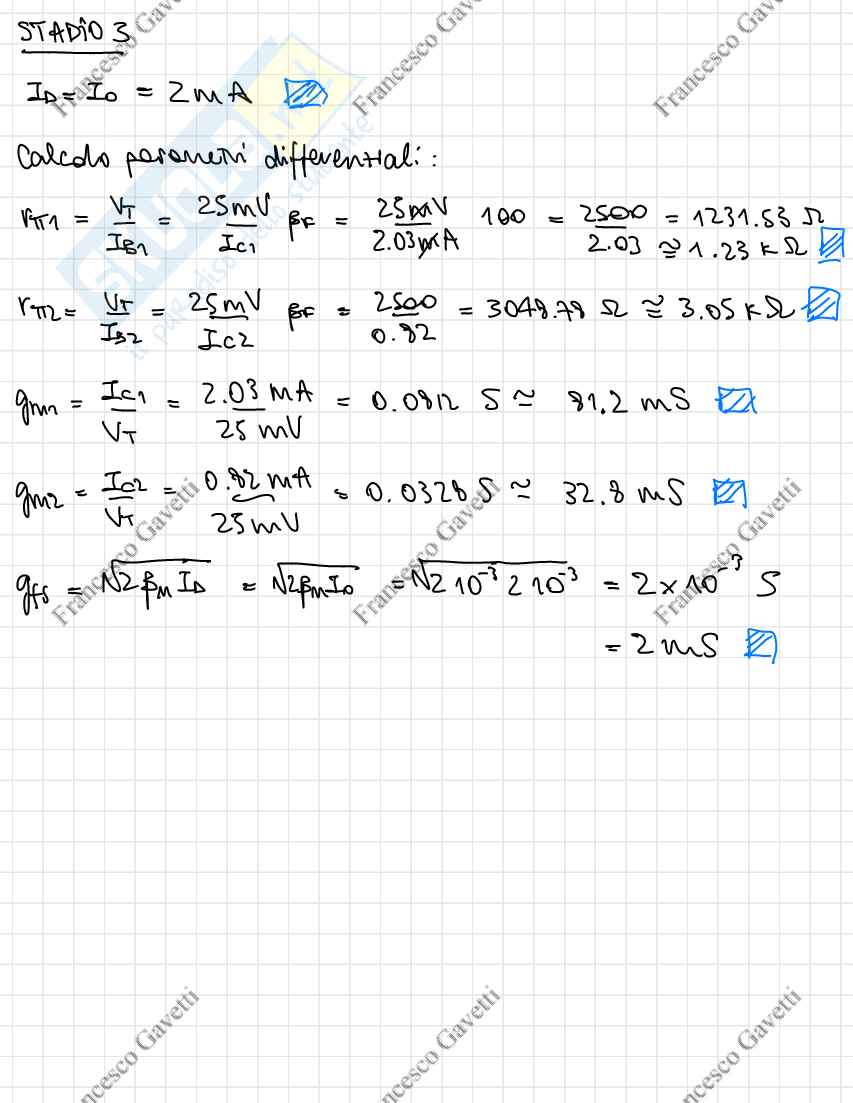 STADIO 3
I_D = I_0 = 2 mA
Calcolo parametri differenziali:
r_π1 = V_T/I_B1 = 25mV/I_C1 β_F = 25mV/2.03mA 100 = 2500/2.03 = 1231.53 Ω
≅ 1.23 kΩ
r_π2 = V_T/I_B2 = 25mV/I_C2 β_F = 2500/0.82 = 3048.78 Ω ≅ 3.05 kΩ
g_m1 = I_C1/V_T = 2.03 mA/25 mV = 0.0812 S ≃ 81.2 mS
g_m2 = I_C2/V_T = 0.82 mA/25mV = 0.0328 S ≃ 32.8 mS
g_fs = √(2 β_M I_D) = √(2 β_M I_0) = √(2 10^-3 2 10^-3) = 2 × 10^-3 S
= 2 mS
Francesco Gavetti
Francesco Gavetti
Francesco Gavetti
Francesco Gavetti
Francesco Gavetti
Francesco Gavetti
Francesco Gavetti
Francesco Gavetti
Francesco Gavetti
SKUOLA.net
il paradiso dello studente